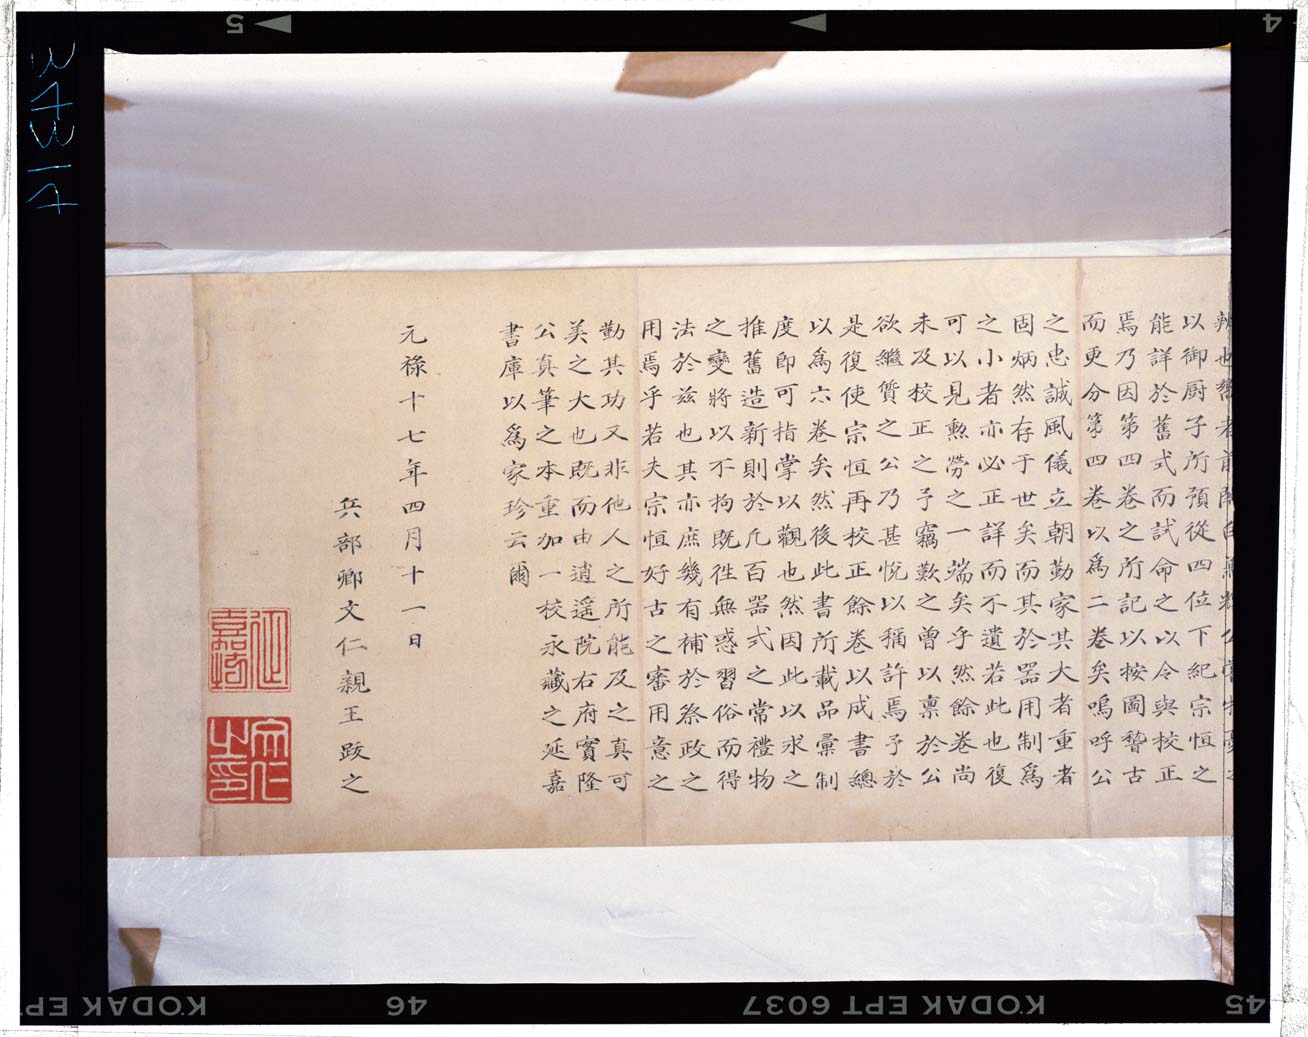 以御厨子所預從四位下紀宗恒之
能詳於舊式而試命之以令與校正
焉乃因第四卷之所記以按圖稽古
而更分第四卷以爲二卷矣嗚呼公
之忠誠風儀立朝勤家其大者重者
固炳然存于世矣而其於器用制爲
之小者亦必正詳而不遺若此也復
可以見勲勞之一端矣乎然餘卷尚
未及校正之予竊歎之曾以稟於公
欲繼質之公乃甚悅以稱許焉予於
是復使宗恒再校正餘卷以成書總
以爲六卷矣然後此書所載品彙制
度即可指掌以觀也然因此以求之
推舊造新則於凢百器式之常禮物
之變將以不拘既徃無惑習俗而得
法於兹也其亦庶幾有補於祭政之
用焉乎若夫宗恒好古之審用意之
勤其功又非他人之所能及之真可
美之大也既而由逍遥院右府實隆
公真筆之本重加一校永藏之延嘉
書庫以爲家珍云爾
元祿十七年四月十一日
兵部卿文仁親王跋之
文仁之印
5
4
KODAK EP
46
KODAK EPT 6037
45